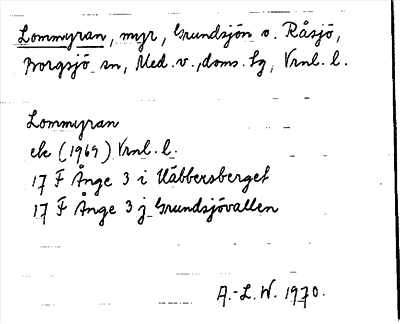 Lommyran, myr, Grundsjön o. Råsjö,
Borgsjö sn, Med. v., doms. lg, Vrnl. l.
Lommyran
ek (1969) Vrnl. l.
17 F Ånge 3 i Häbbersberget
17 F Ånge 3 j Grundsjövallen
A.-L. W. 1970.